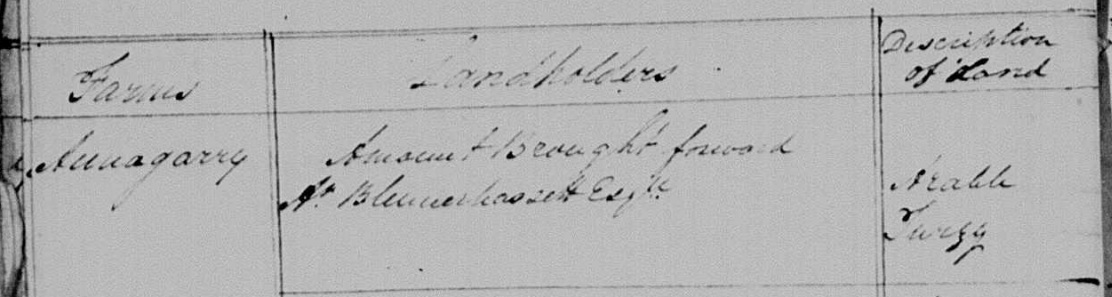 Farms
Landholders
Description
of Land
Annagarry
Amount Brought forward
Ar. Blennerhassett Esqr.
Arable
Furzy